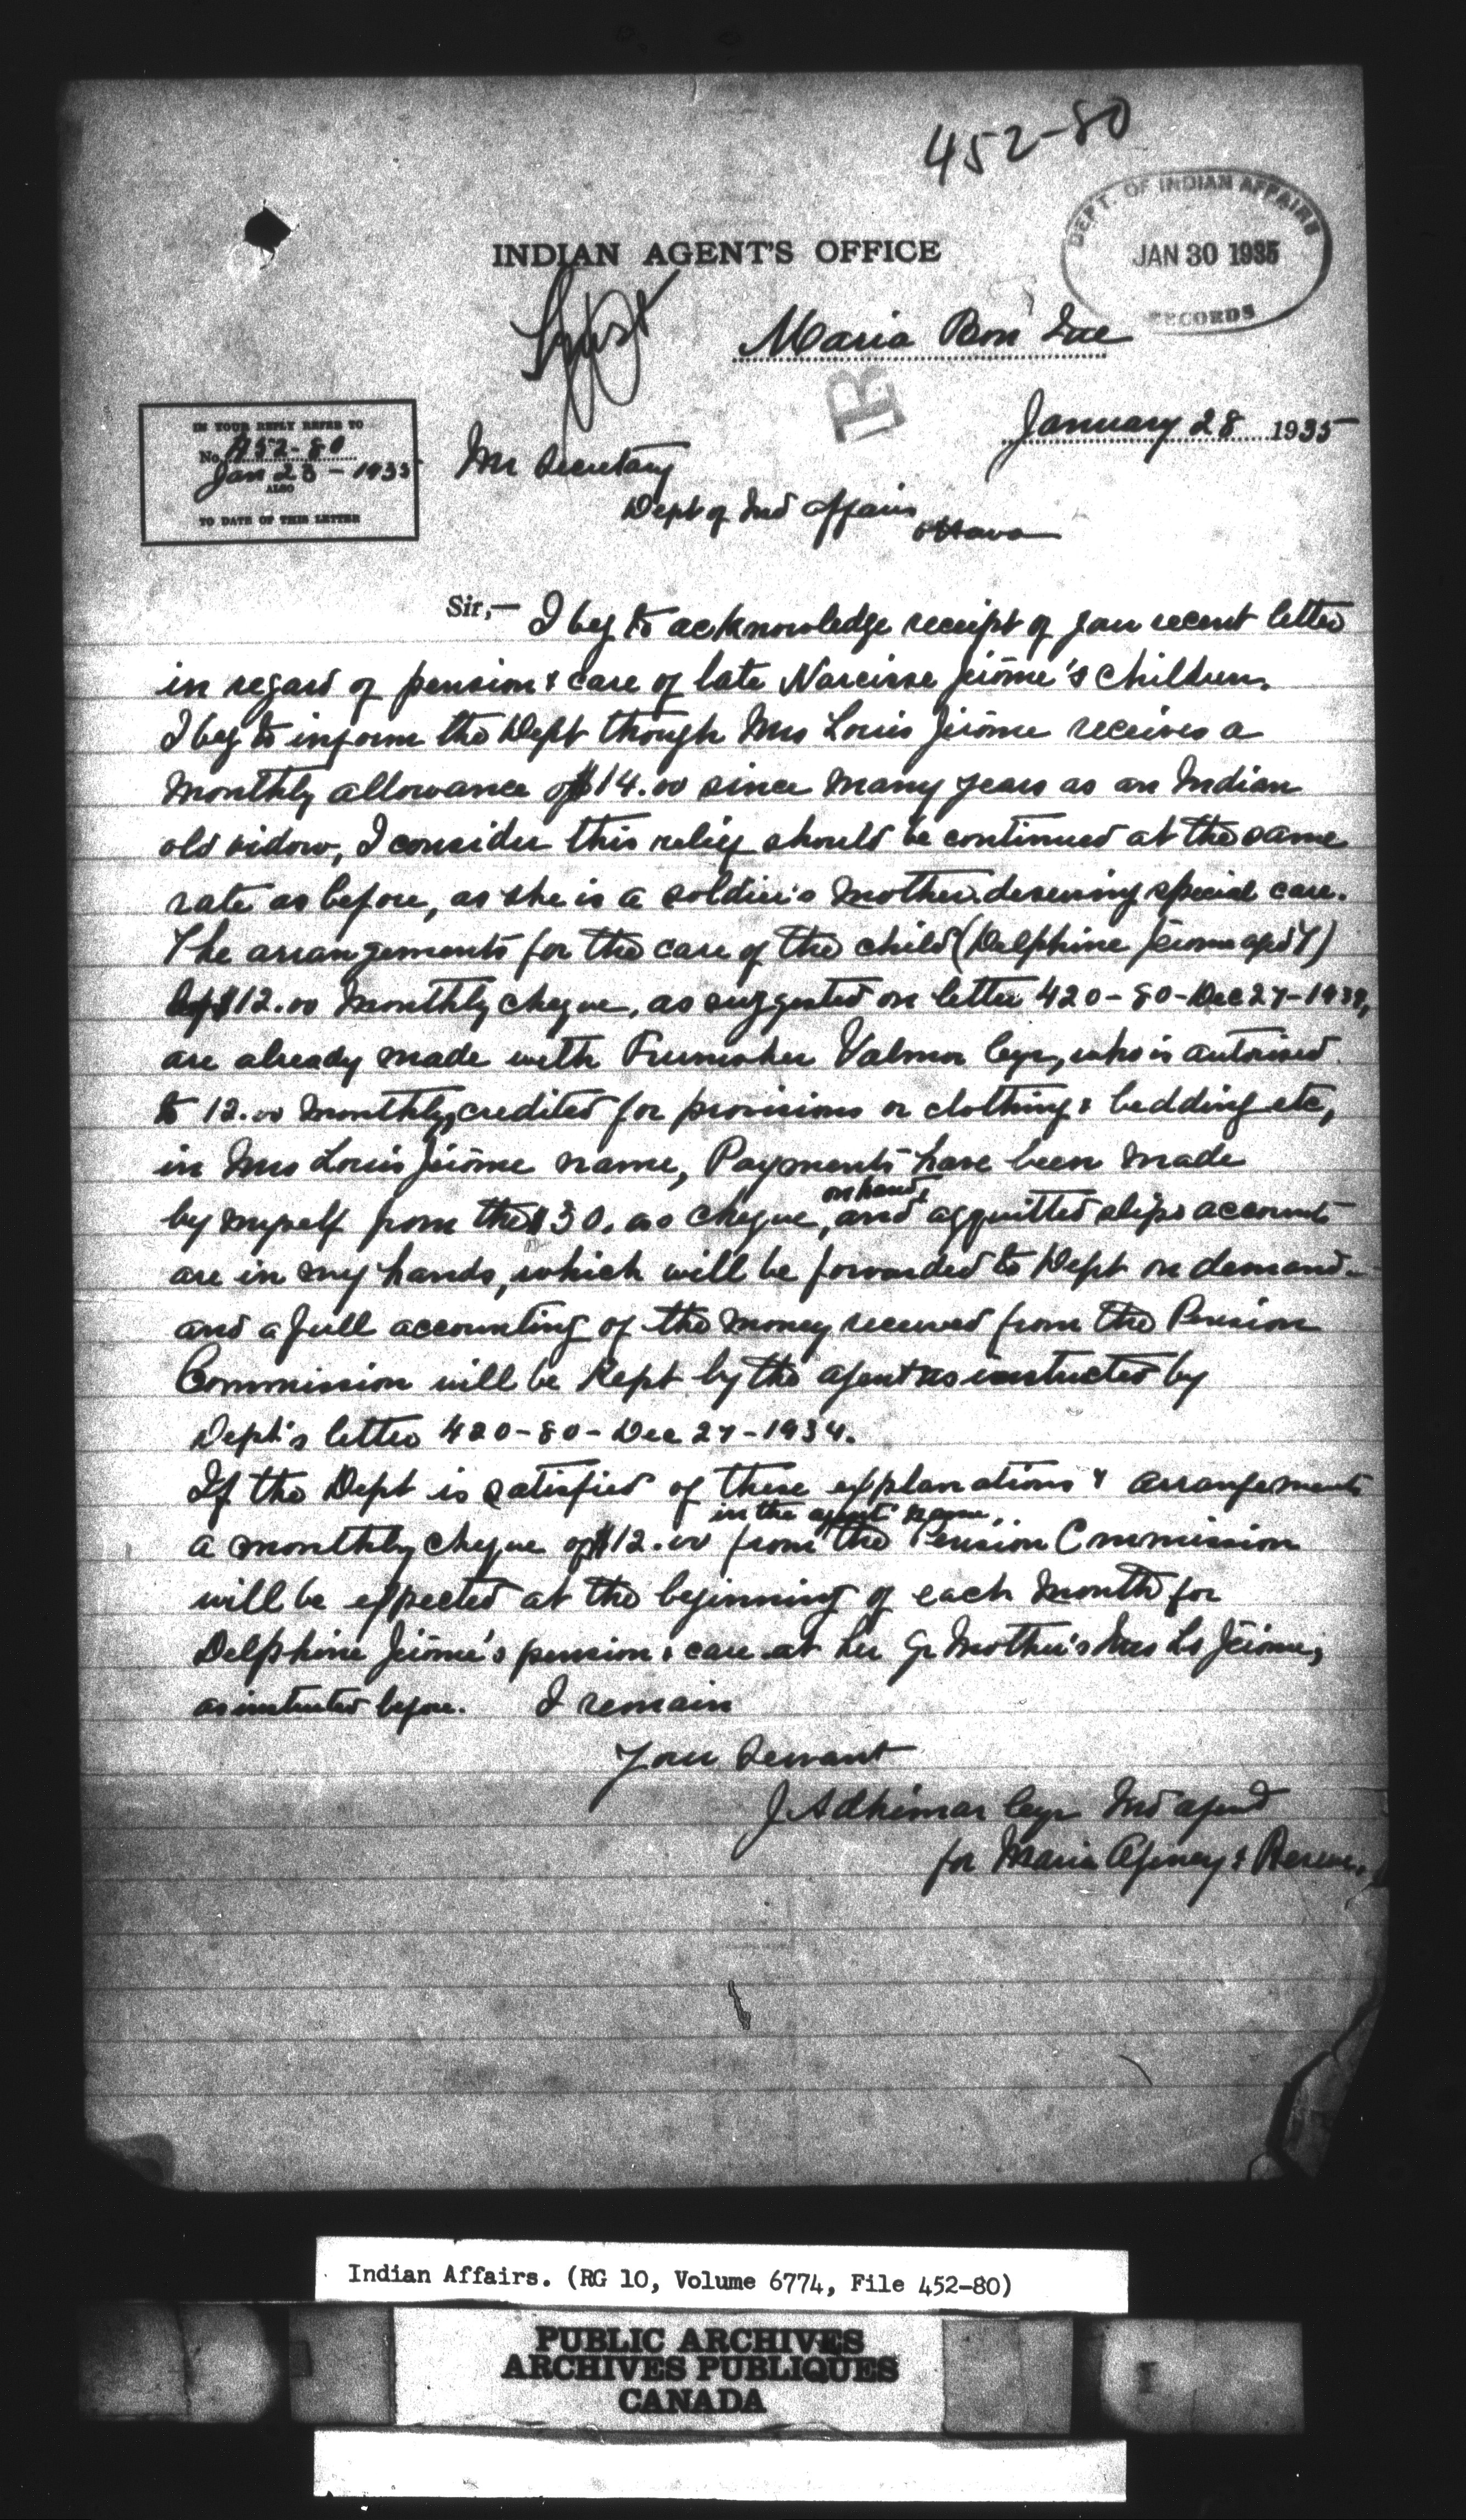 452-80
DEPT. OF INDIAN AFFAIRS
JAN 30 1935
RECORDS
INDIAN AGENT'S OFFICE
Maria Bon Que
R
January 28 1935
IN YOUR REPLY REFER TO
No. 452-80
Jan 28 - 1935
ALSO
TO DATE OF THIS LETTER
Mr Secretary
Dept of Ind Affairs
Ottawa
Sir,- I beg to acknowledge receipt of your recent letter
in regard of pension & care of late Narcisse Jérôme's children.
I beg to inform the Dept though Mrs Louis Jérôme receives a
monthly allowance of $14.00 since many years as an Indian
old widow, I consider this relief should be continued at the same
rate as before, as she is a soldier's mother deserving special care.
The arrangements for the care of the child (Delphine Jérome aged 7)
by $12.00 monthly cheque, as suggested on letter 420-80-Dec 27-1934,
are already made with Valmon Cyr, who is autorised
to 12.00 monthly, credited for provisions or clothing & bedding etc,
in Mrs Louis Jérôme name, Payments have been made
by myself from the $30.00 cheque, on hand, and acquitted slips accounts
are in my hands, which will be forwarded to Dept on demand -
and a full accounting of the money received from the Pension
Commission will be kept by the agent as instructed by
Dept's letter 420-80-Dec 27-1934.
If the Dept is satisfied of these explanations & arrangements
a monthly cheque of $12.00 in the agent name from the Pension Commission
will be expected at the beginning of each month for
Delphine Jérôme's pension & care at her Gr Mother's Mrs Ls Jérôme,
as instructed before. I remain
Your Servant
J. Adhémar Cyr Ind agent
for Maria Agency & Reserve.
Indian Affairs. (RG 10, Volume 6774, File 452-80)
PUBLIC ARCHIVES
ARCHIVES PUBLIQUES
CANADA